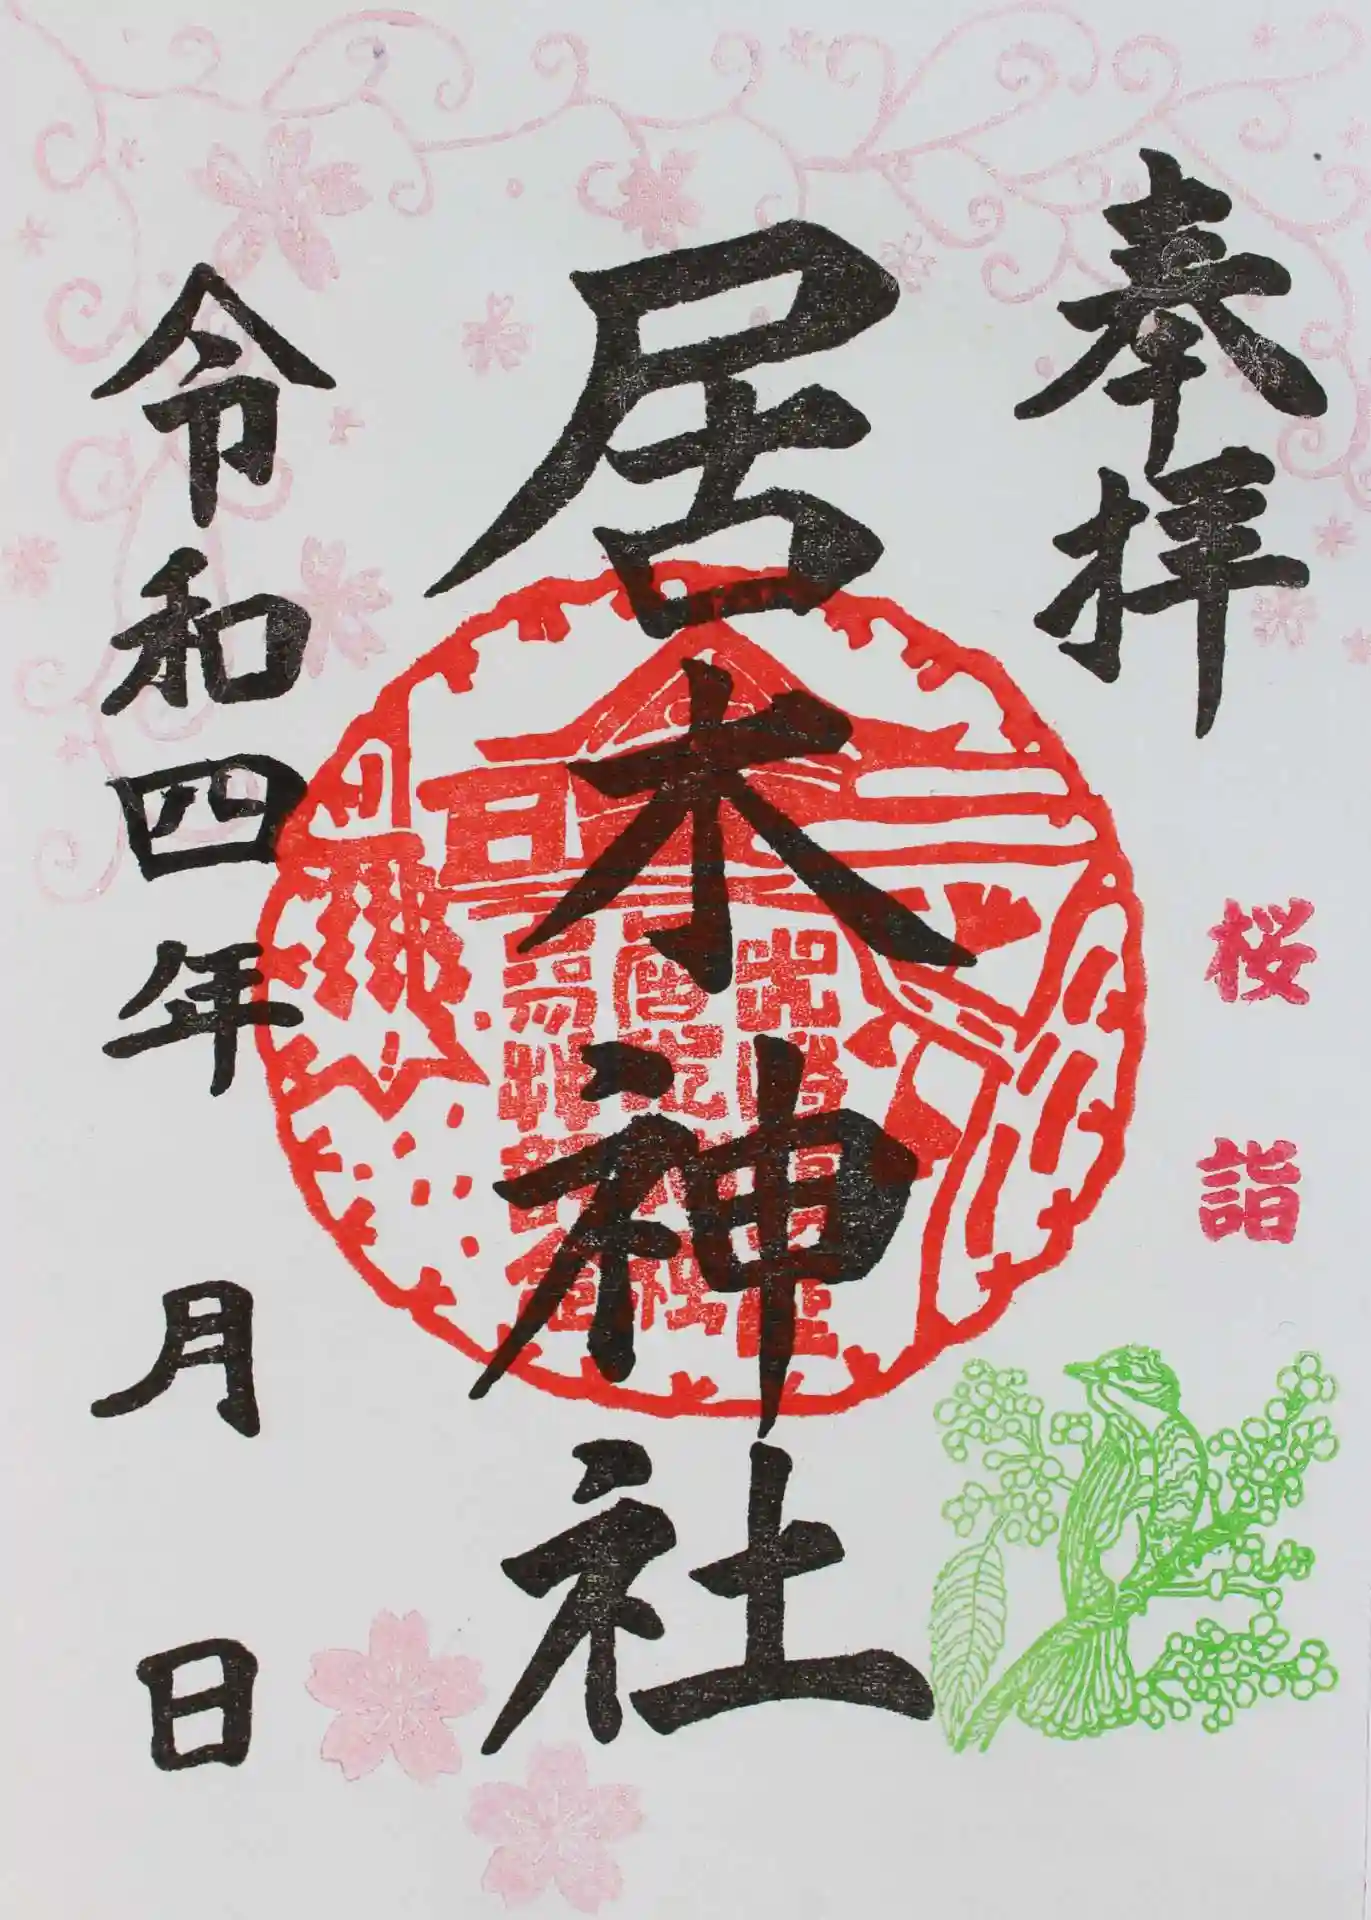 奉拝
桜詣
居木神社
令和四年 月 日